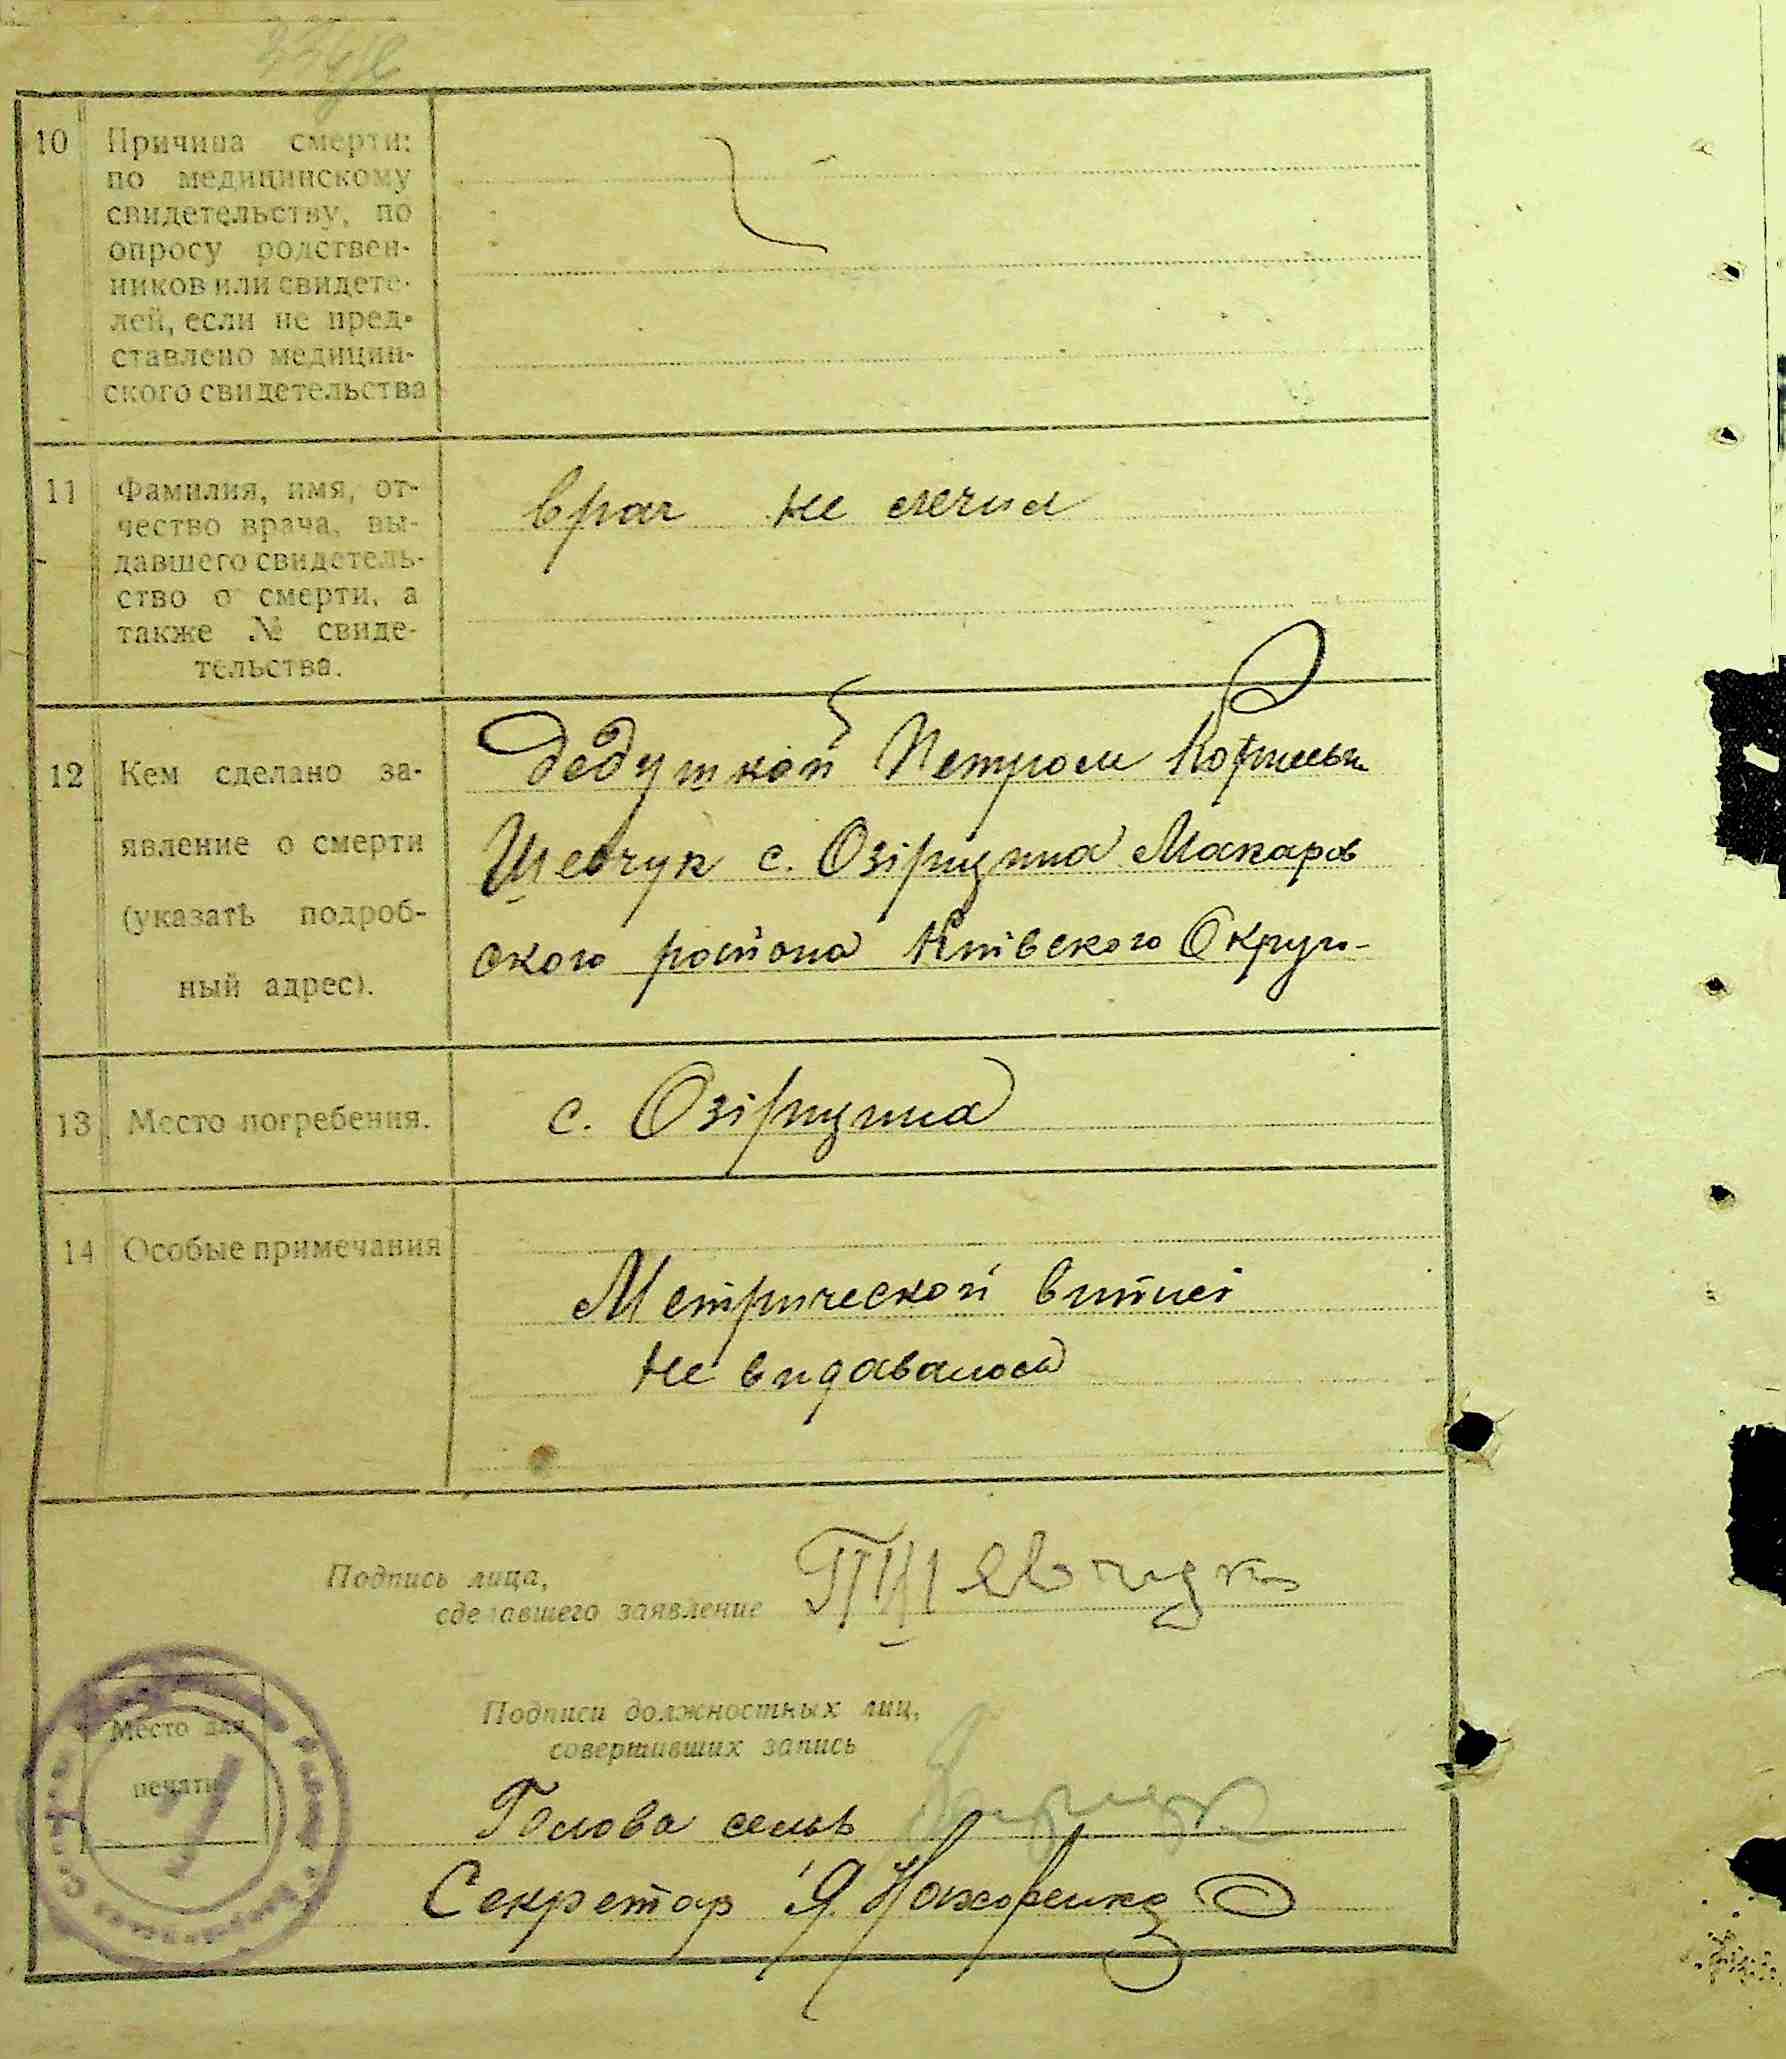 10 Причина смерти:
по медицинскому
свидетельству, по
опросу родствен-
ников или свидете-
лей, если не пред-
ставлено медицин-
ского свидетельства
11 Фамилия, имя, от-
чество врача, вы-
давшего свидетель-
ство о смерти, а
также № свиде-
тельства.
врач не лечил
12 Кем сделано за-
явление о смерти
(указать подроб-
ный адрес).
дедушкой Петром
Шевчук с. Озірщина Макаров
ского района Київского Округа
13 Место погребения.
с. Озірщина
14 Особые примечания
Метрической
не видавалось
Подпись лица,
сделавшего заявление
ПШевчук
Место для
печати
Подписи должностных лиц,
совершивших запись
Голова
Секретар Я.